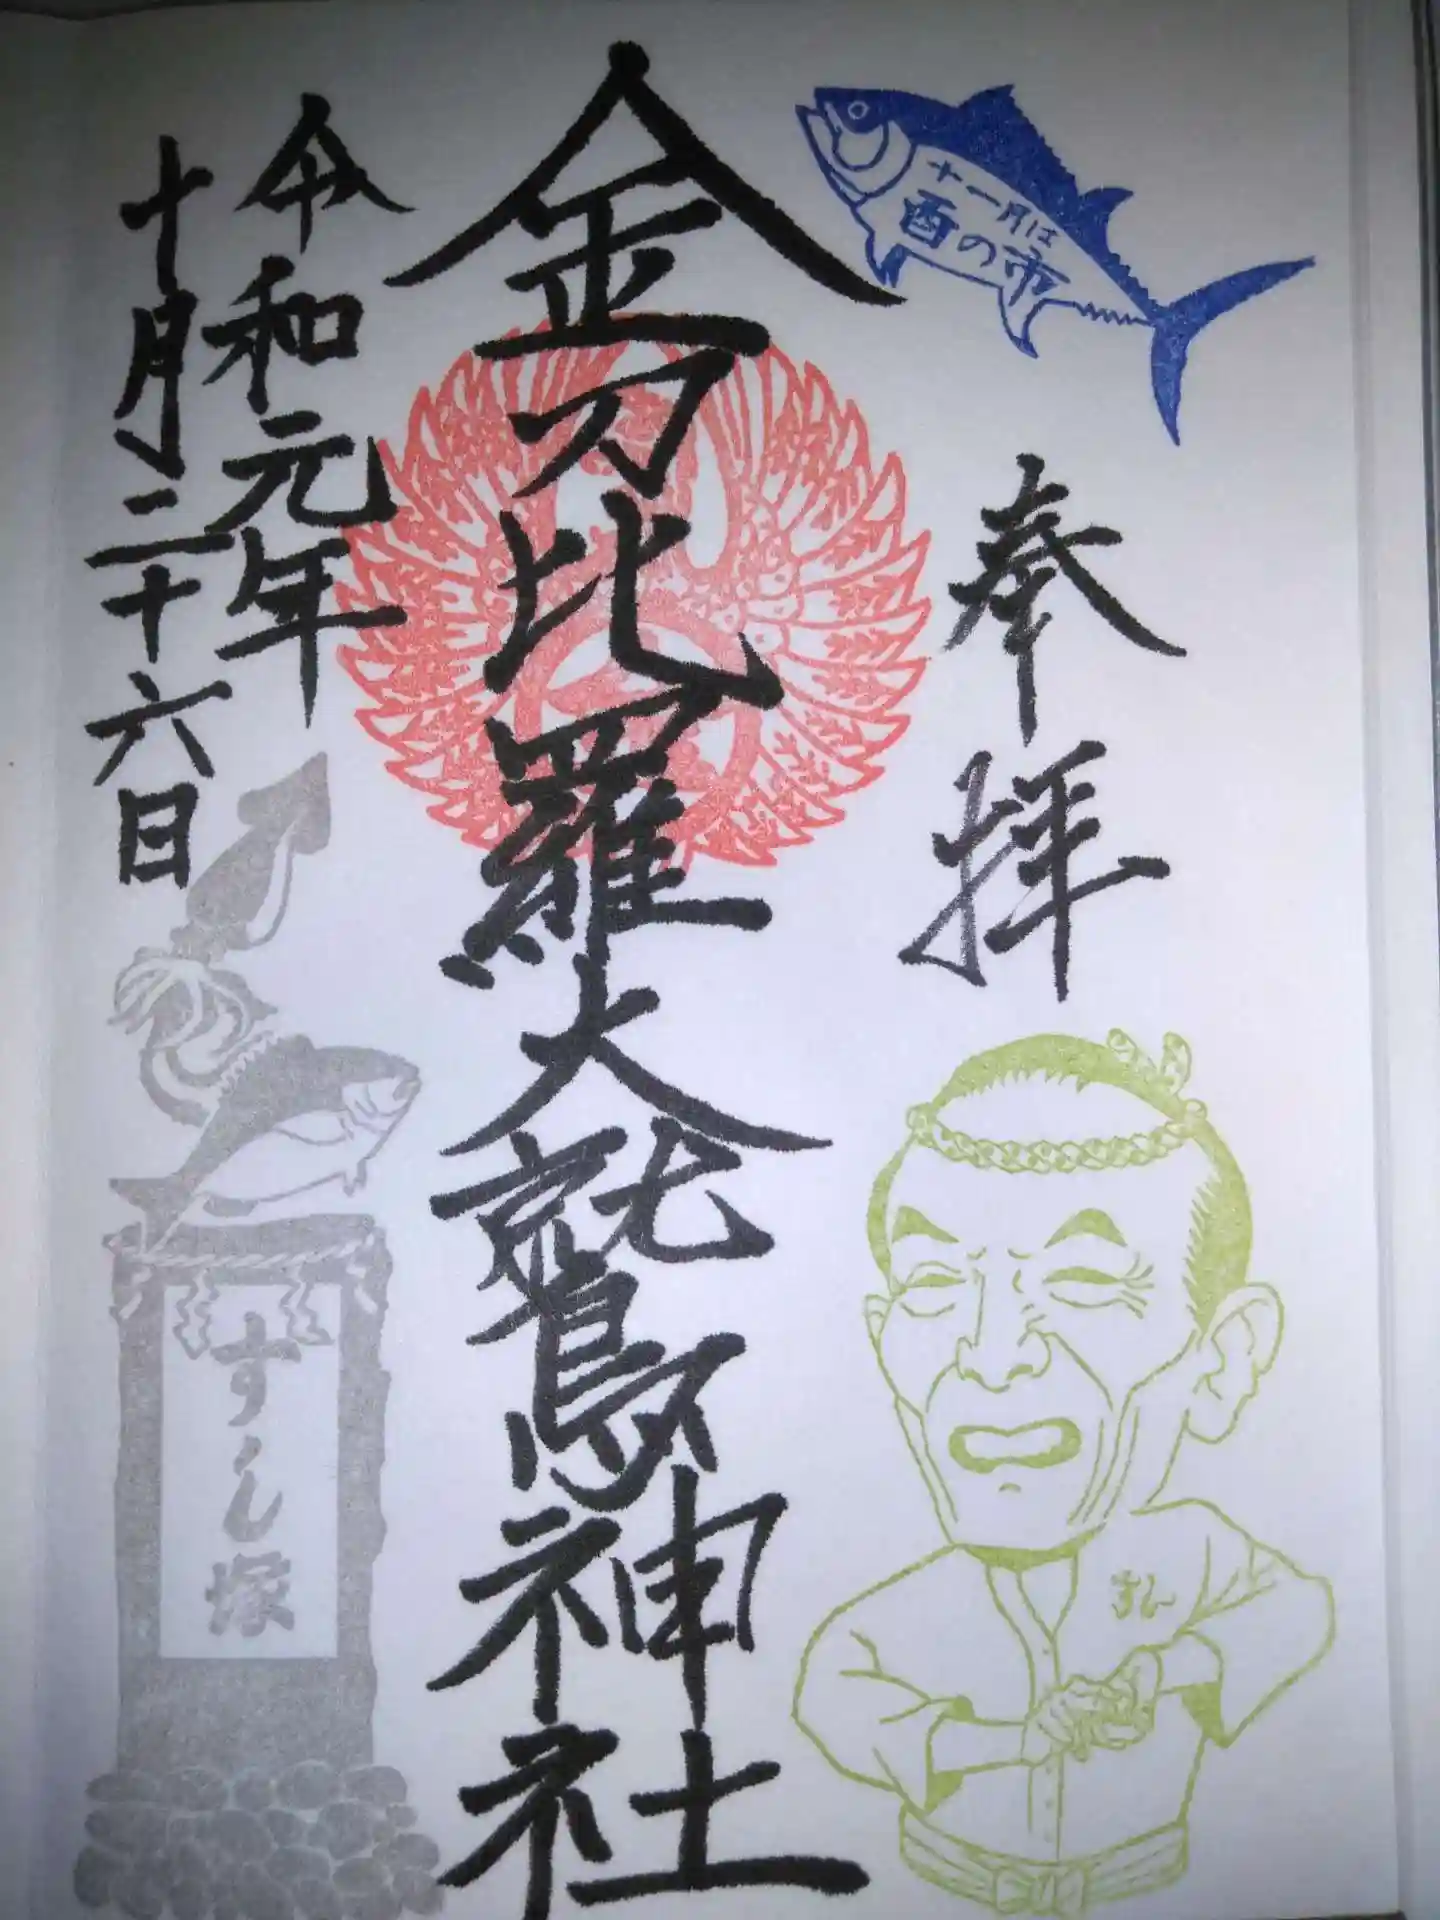 十一月は
酉の市
奉拝
金刀比羅大鷲神社
令和元年
十月二十六日
すし塚
すし